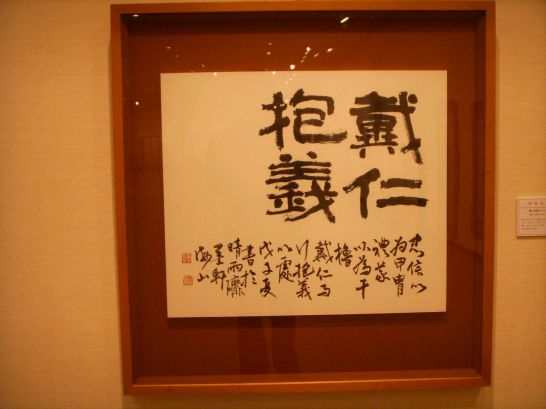 戴仁
抱義
忠信以
為甲冑
禮義
以為干
櫓
戴仁而
行抱義
而處
戊子夏
書於
墨軒